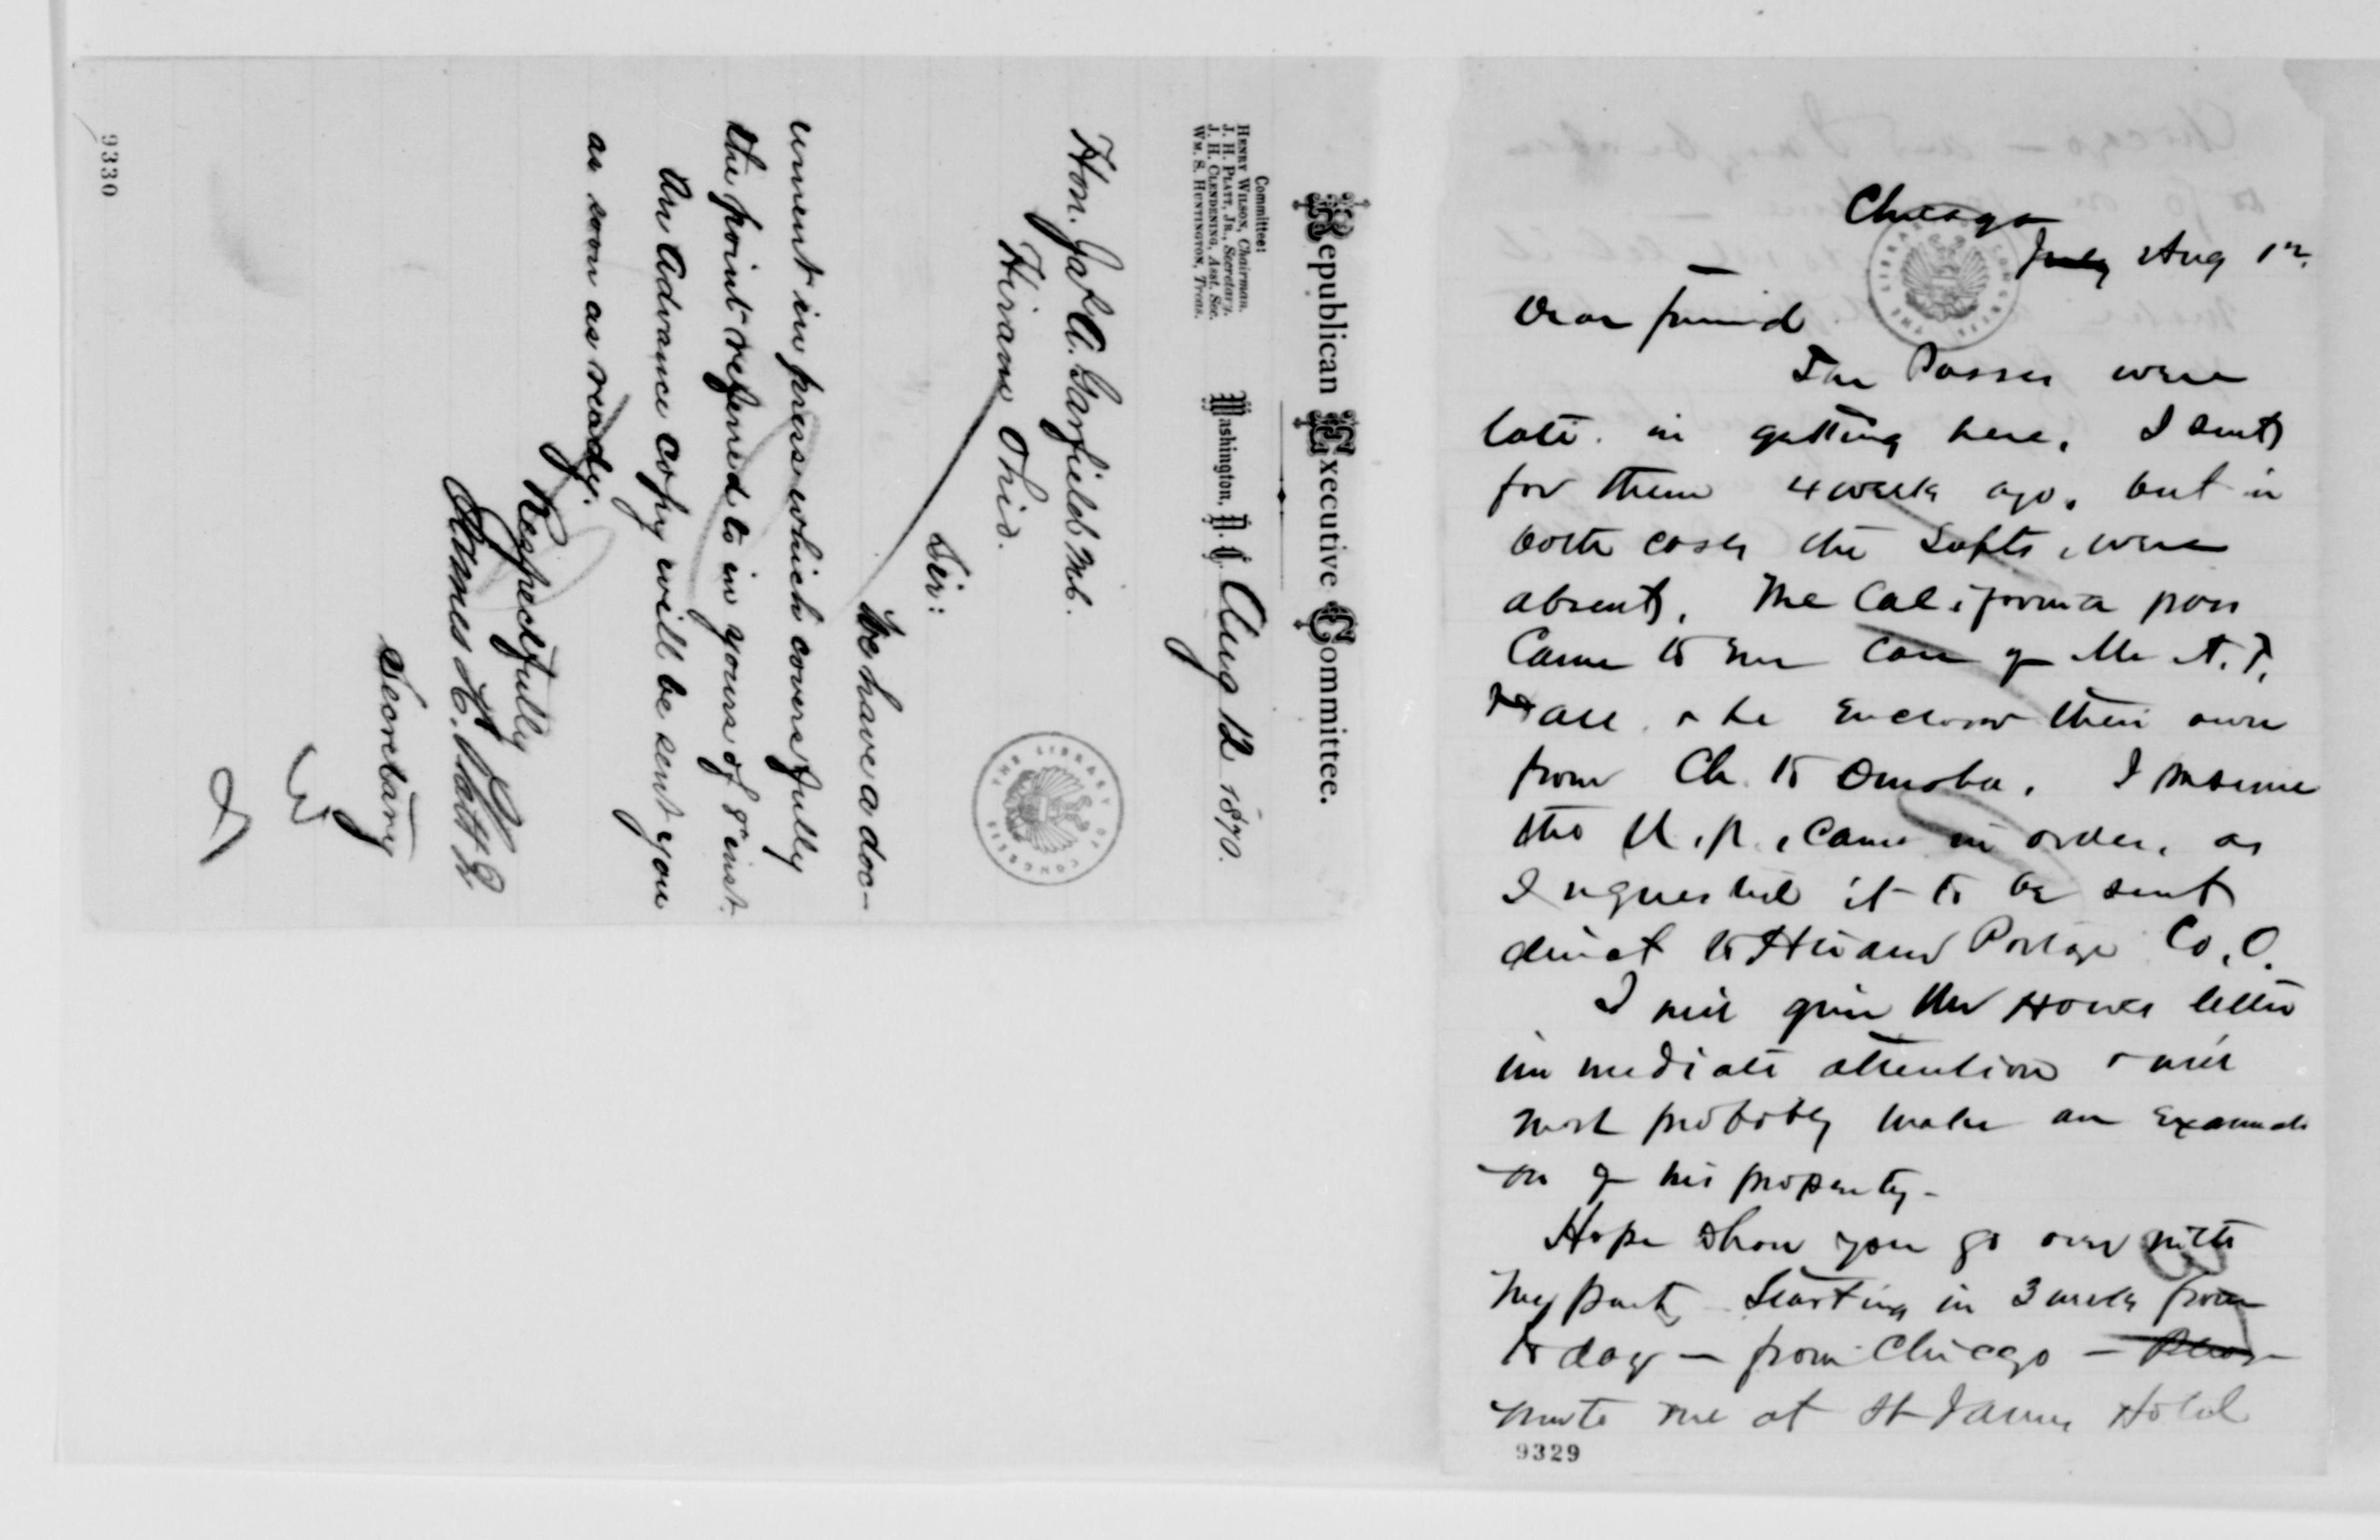 Republican Executive Committee.
Committee:
Henry Wilson, Chairman.
J. H. Platt, Jr., Secretary.
J. H. Clendening, Asst. Sec.
Wm. S. Huntington, Treas.
Washington, D. C. Aug 12 1870.
Hon. Jas A. Garfield M.C.
Hiram Ohio.
Sir:
We have a doc-
ument in press which covers fully
the point referred to in yours of 8" inst.
An advance copy will be sent you
as soon as ready.
Respectfully
James H. Platt Jr
Secretary
9330
Chicago
July Aug 1st
Dear friend
The Passes were
late in getting here. I sent
for them 4 weeks ago, but in
both cases the Supts, were
absent. The California pass
Came to me care of Mr A. T.
Hall & he enclosed their own
from Ch. to Omaha. I presume
the U.P. came in order, as
I requested it to be sent
direct to Hiram Portage Co, O.
I will give the Howes letter
immediate attention & will
most probably make an Examinati
on of his property -
Hope you go over with
my party starting in 3 weeks from
to day - from Chicago -
write me at St James Hotel
9329
THE LIBRARY OF CONGRESS